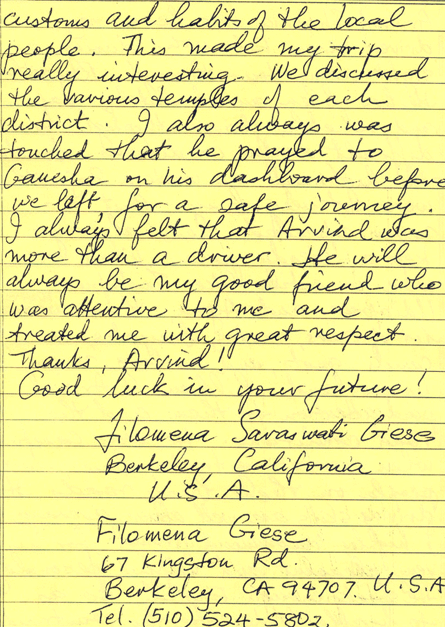 customs and habits of the local
people. This made my trip
really interesting. We discussed
the various temples of each
district. I also always was
touched that he prayed to
Ganesha on his dashboard before
we left, for a safe journey.
I always felt that Arvind was
more than a driver. He will
always be my good friend who
was attentive to me and
treated me with great respect.
Thanks, Arvind!
Good luck in your future!
Filomena Saraswati Giese
Berkeley, California
U.S.A.
Filomena Giese
67 Kingston Rd.
Berkeley, CA 94707. U.S.A
Tel. (510) 524-5802.